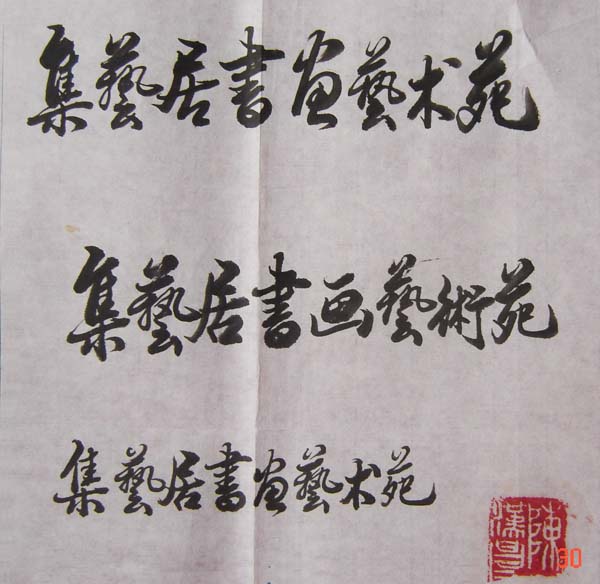 集藝居書画藝术苑
集藝居書画藝術苑
集藝居書画藝术苑
30